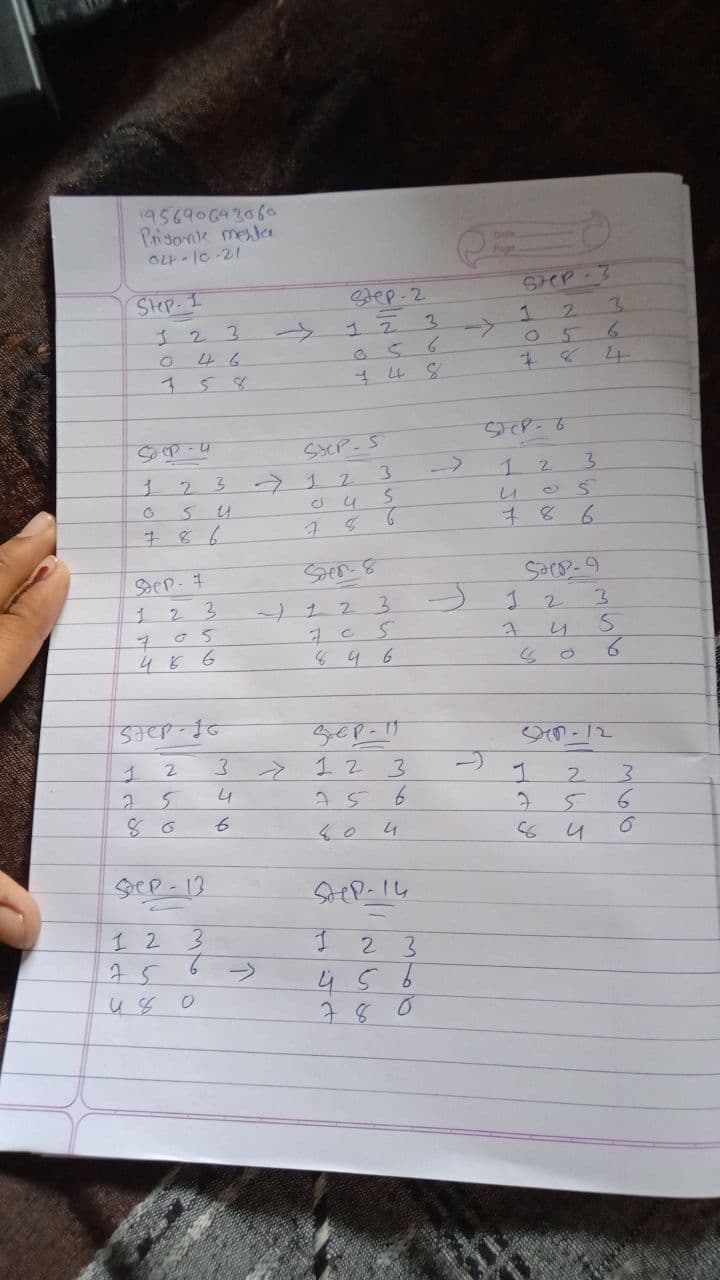 195690693060
Priyank Mehta
04-10-21
Date
Page
Step-1
1 2 3 →
0 4 6
7 5 8
Step-2
1 2 3 →
0 5 6
7 4 8
Step-3
1 2 3
0 5 6
7 8 4
Step-4
1 2 3 →
0 5 4
7 8 6
Step-5
1 2 3 →
0 4 5
7 8 6
Step-6
1 2 3
4 0 5
7 8 6
Step-7
1 2 3 →
7 0 5
4 8 6
Step-8
1 2 3 →
7 0 5
8 4 6
Step-9
1 2 3
7 4 5
8 0 6
Step-10
1 2 3 →
7 5 4
8 0 6
Step-11
1 2 3 →
7 5 6
8 0 4
Step-12
1 2 3
7 5 6
8 4 0
Step-13
1 2 3
7 5 6 →
4 8 0
Step-14
1 2 3
4 5 6
7 8 0